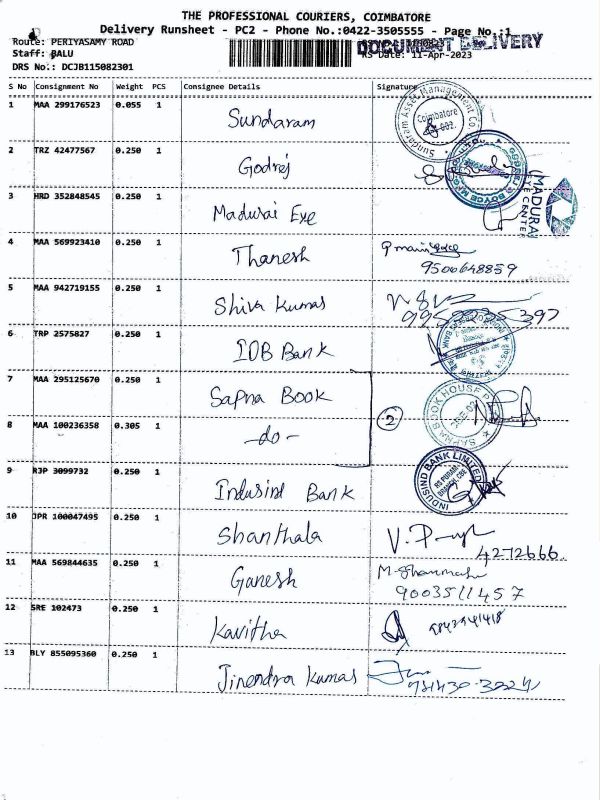 THE PROFESSIONAL COURIERS, COIMBATORE
Delivery Runsheet - PC2 - Phone No.:0422-3505555 - Page No.:1
Route: PERIYASAMY ROAD
DOCUMENT DELIVERY
Staff: BALU
RS Date: 11-Apr-2023
DRS No.: DCJB115082301
S No Consignment No Weight PCS Consignee Details Signature
1 MAA 299176523 0.055 1 Sundaram
Sundaram Asset Management Co
Coimbatore
2 TRZ 42477567 0.250 1 Godrej
3 HRD 352848545 0.250 1 Madurai Eye
MADURAI
EYE CENTRE
4 MAA 569923410 0.250 1 Thanesh
9500648859
5 MAA 942719155 0.250 1 Shiva Kumar
6 TRP 2575827 0.250 1 IOB Bank
7 MAA 295125670 0.250 1 Sapna Book
SAPNA BOOK HOUSE P
8 MAA 100236358 0.305 1 -do- 2
9 RJP 3099732 0.250 1 Indusind Bank
INDUSIND BANK LIMITED
RS PURAM
BRANCH, CBE
10 JPR 100047495 0.250 1 Shanthala
4272666
11 MAA 569844635 0.250 1 Ganesh
9003511457
12 SRE 102473 0.250 1 Kavitha
13 BLY 855095360 0.250 1 Jinendra Kumar